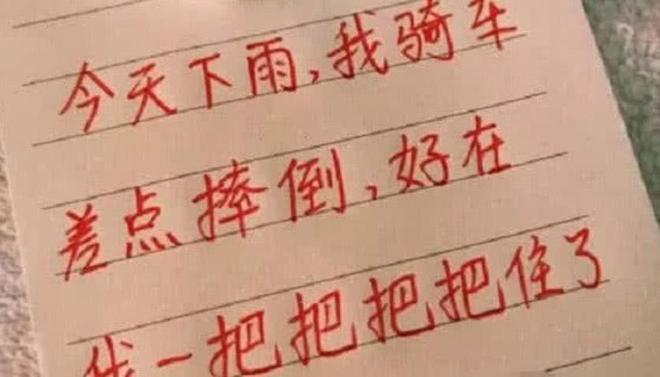 今天下雨,我骑车
差点捧倒,好在
我一把把把把住了